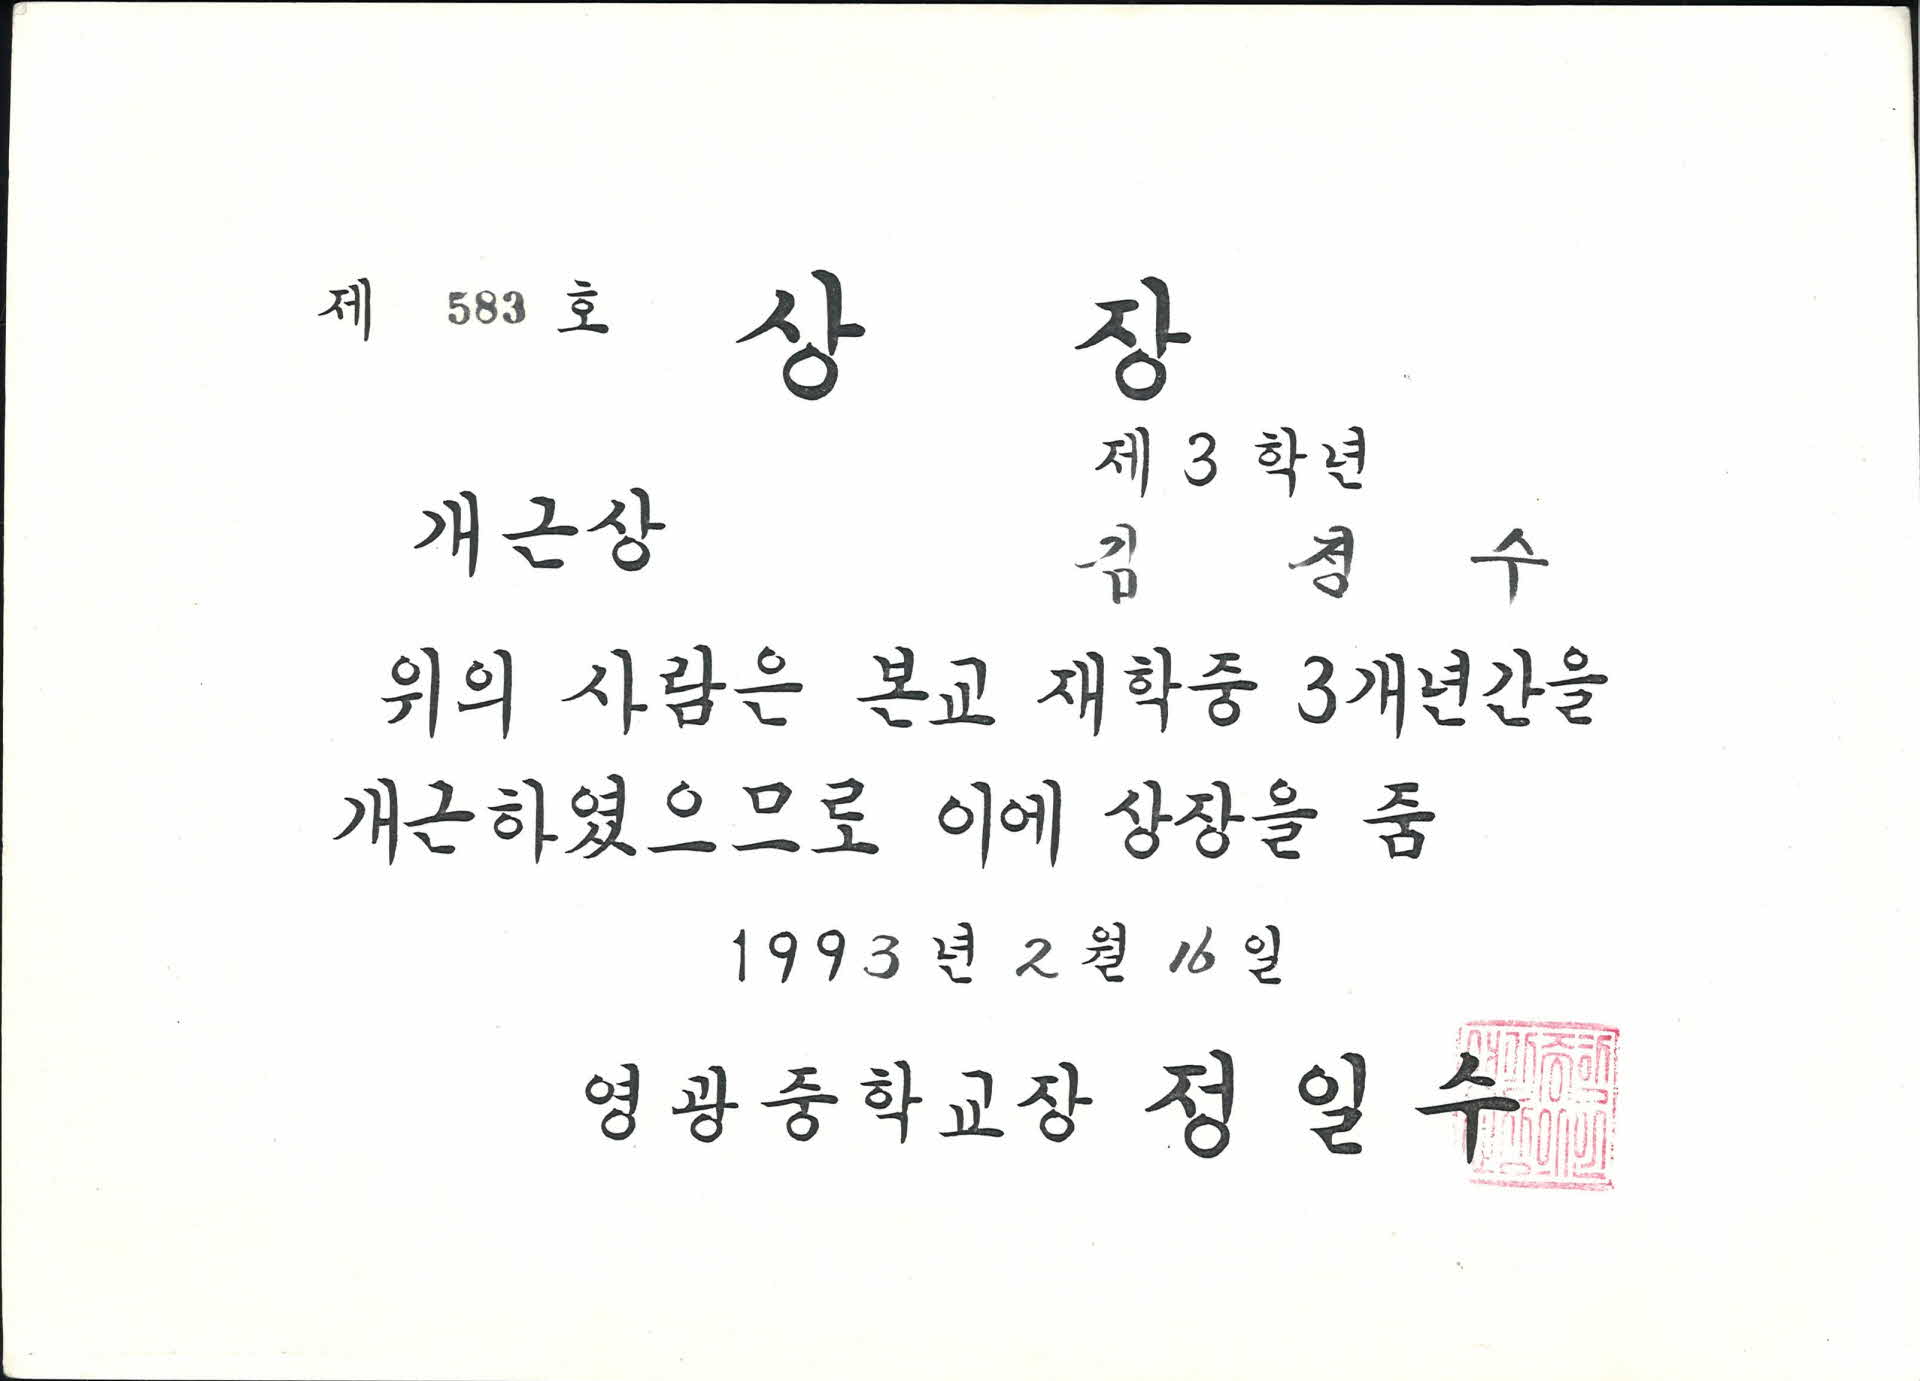 제 583 호 상 장
제 3 학년
개근상
김 경 수
위의 사람은 본교 재학중 3개년간을
개근하였으므로 이에 상장을 줌
1993 년 2 월 16 일
영광중학교장 정 일 수